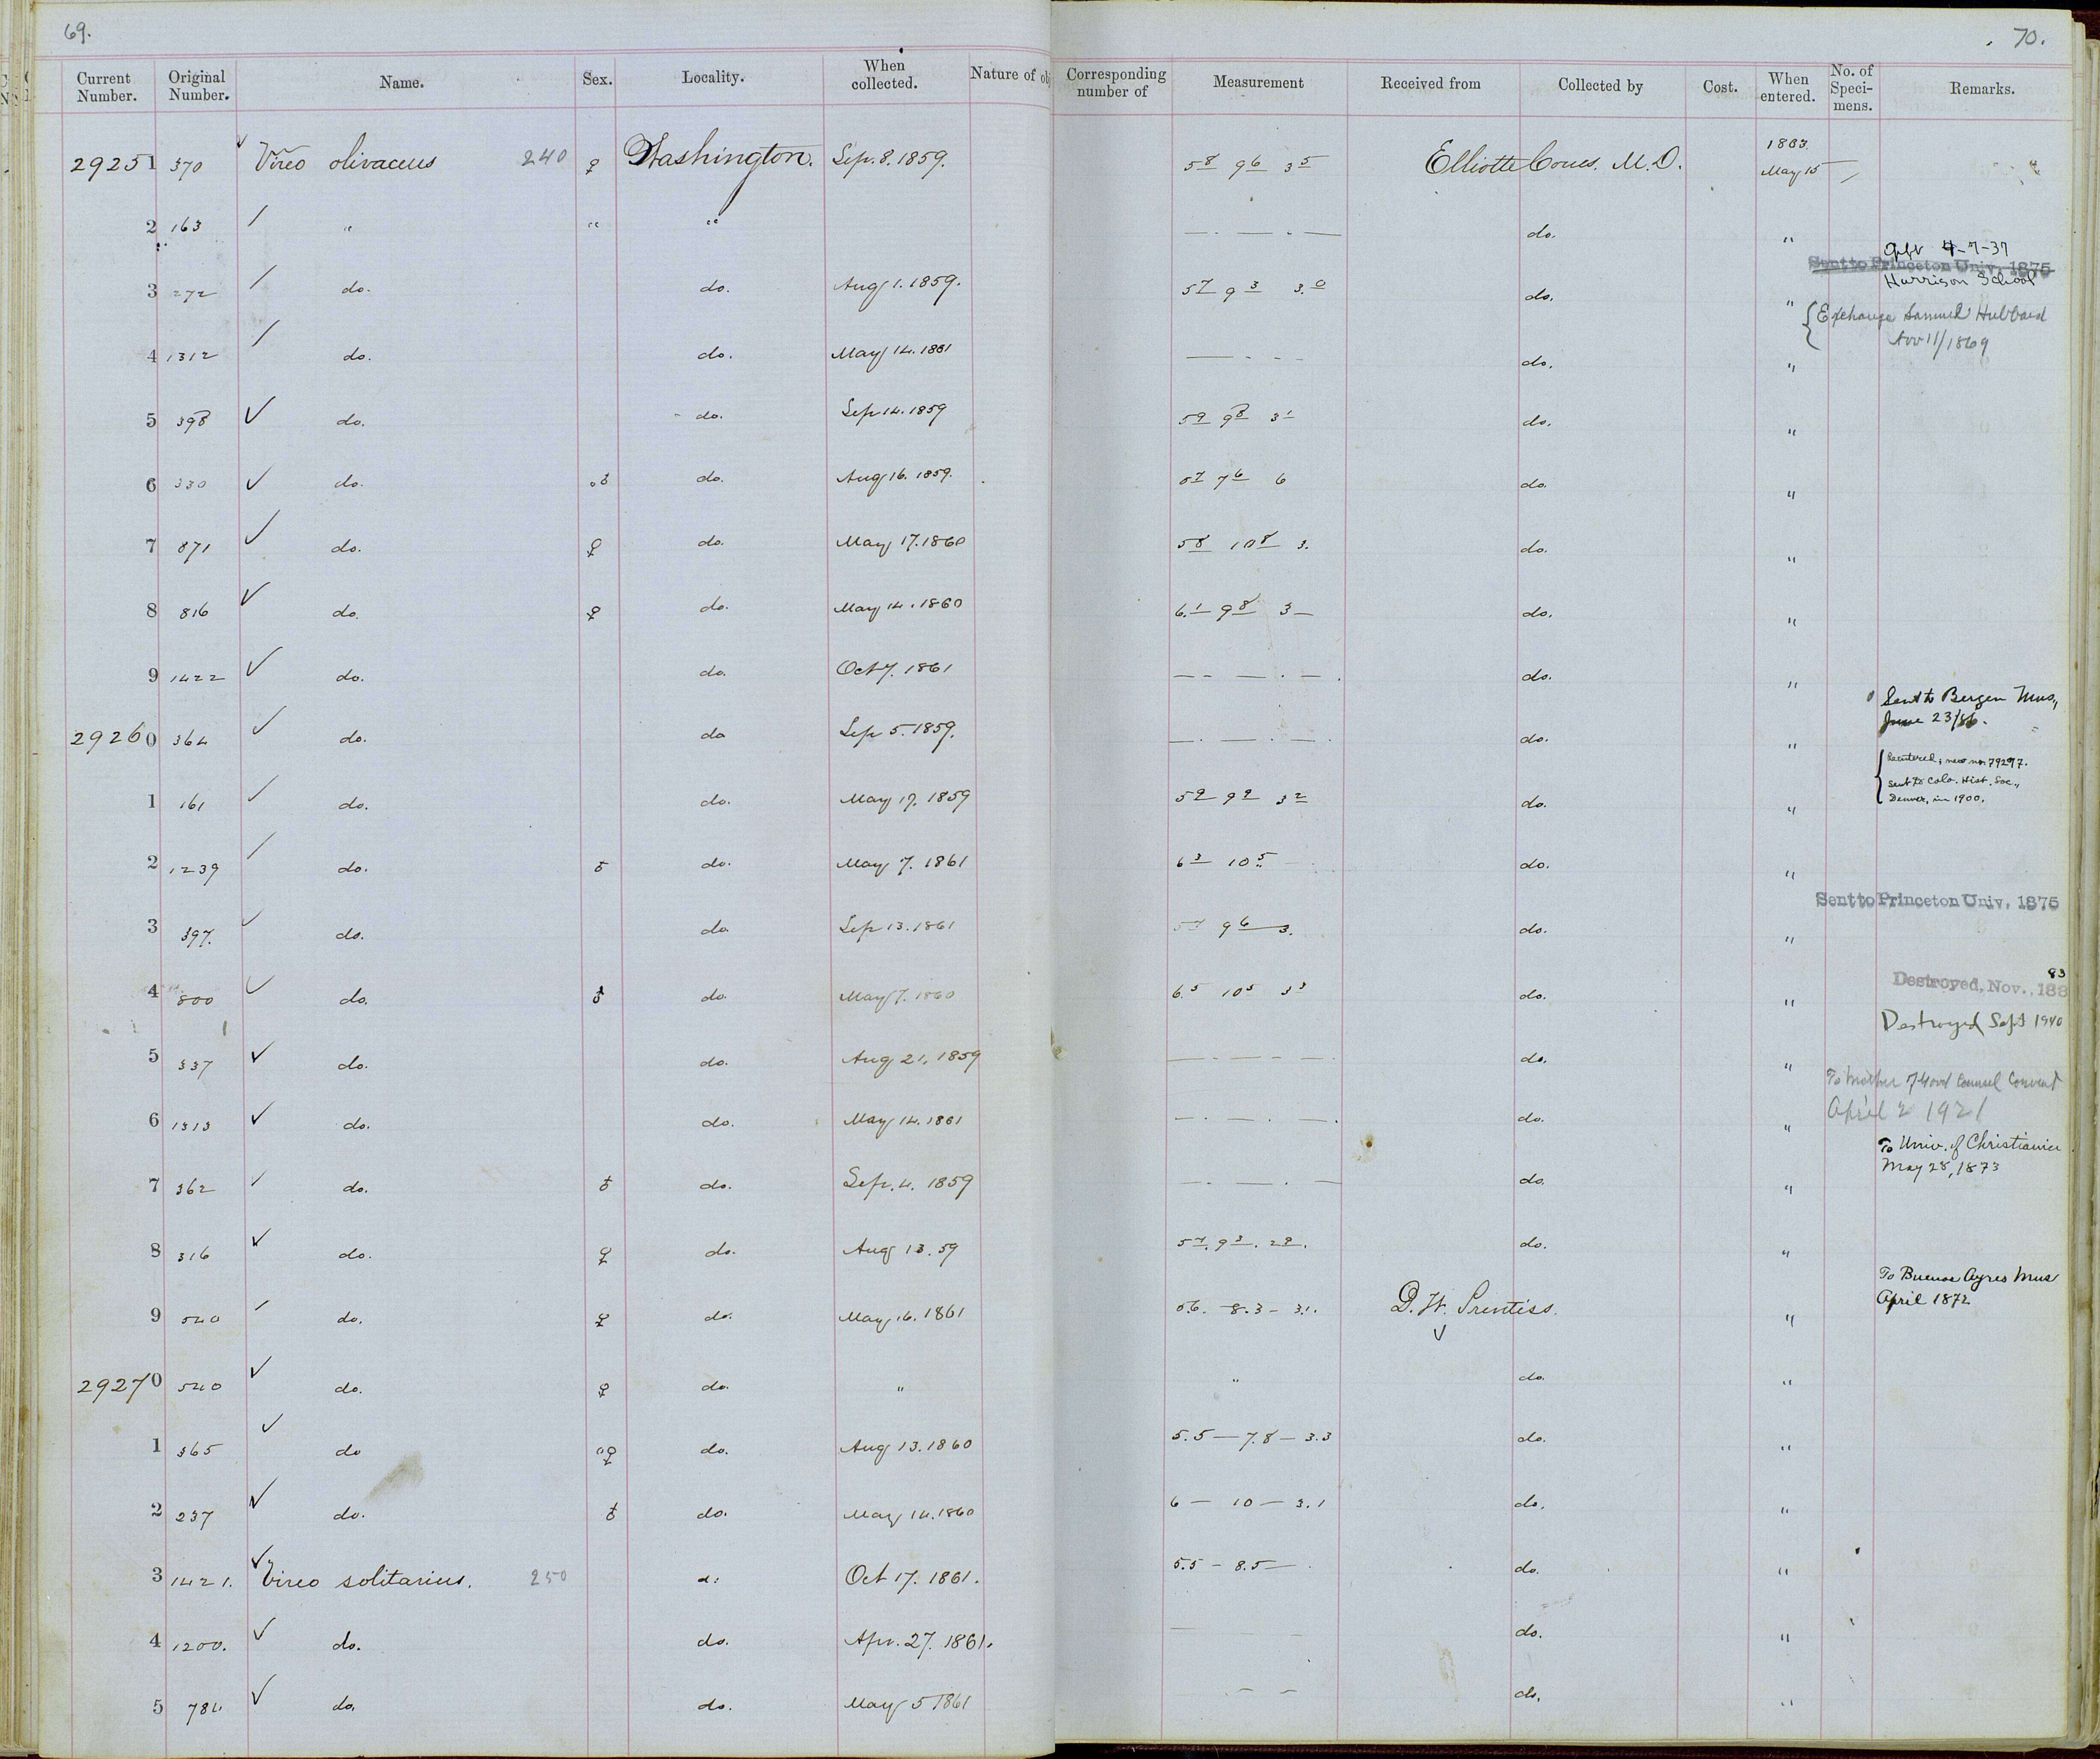 69.
70.
Current Number. Original Number. Name. Sex. Locality. When collected. Nature of ob Corresponding number of Measurement Received from Collected by Cost. When entered. No. of Speci-mens. Remarks.
29251 370 Vireo olivaceus 240 ♀ Washington. Sep. 8. 1859. 5 8 9 6 3 5 Elliotte Coues. M.D. 1883. May 15
2 163 " " " do. "
Gift 4-7-37
Sent to Princeton Univ. 1875
Harrison School
3 272 do. do. Aug 1. 1859. 5 7 9 3 3. 0 do. "
{Exchange Samuel Hubbard
Nov 11/1869
4 1312 do. do. May 14. 1861 do. "
5 398 do. do. Sep 14. 1859 5 9 9 8 3 1 do. "
6 330 do. do. Aug 16. 1859. 7 6 6 do. "
7 871 do. ♀ do. May 17. 1860 5 8 10 8 3. do. "
8 816 do. ♀ do. May 14. 1860 6. 1 9 8 3 do. "
9 1422 do. do. Oct 7. 1861 do. "
Sent to Bergen Mus.,
June 23/86.
29260 364 do. do Sep 5. 1859. do. "
{Reentered, new no. 79297.
sent to Colo. Hist. Soc.,
Denver, in 1900.
1 161 do. do. May 17. 1859 5 9 9 9 3 2 do. "
2 1239 do. ♂ do. May 7. 1861 6 3 10 5 do. "
Sent to Princeton Univ. 1875
3 397. do. do. Sep 13. 1861 5 7 9 6 3. do. "
83
Destroyed, Nov., 188
4 800 do. ♂ do. May 7. 1860 6. 5 10 5 3 3 do. "
Destroyed Sept 1940
5 337 do. do. Aug 21. 1859 do. "
To Mother Counsel Convent
April 2 1921
6 1313 do. do. May 14. 1861 do. "
To Univ. of Christiania
May 28, 1873
7 362 do. ♂ do. Sep. 4. 1859 do. "
8 316 do. ♀ do. Aug 13. 59 5 7. 9 3. 2 9. do. "
To Buenos Ayres Mus
April 1872
9 540 do. ♀ do. May 16. 1861 5.6. – 8.3 – 3.1. D. W. Prentiss. "
29270 540 do. ♀ do. " " do. "
1 365 do "♀ do. Aug 13. 1860 5.5 — 7.8 — 3.3 do. "
2 237 do. ♂ do. May 14. 1860 6 — 10 — 3.1 do. "
3 1421. Vireo solitarius. 250 d: Oct 17. 1861. 5.5 – 8.5 — do. "
4 1200. do. do. Apr. 27. 1861. do. "
5 784 do. do. May 5 1861 do. "